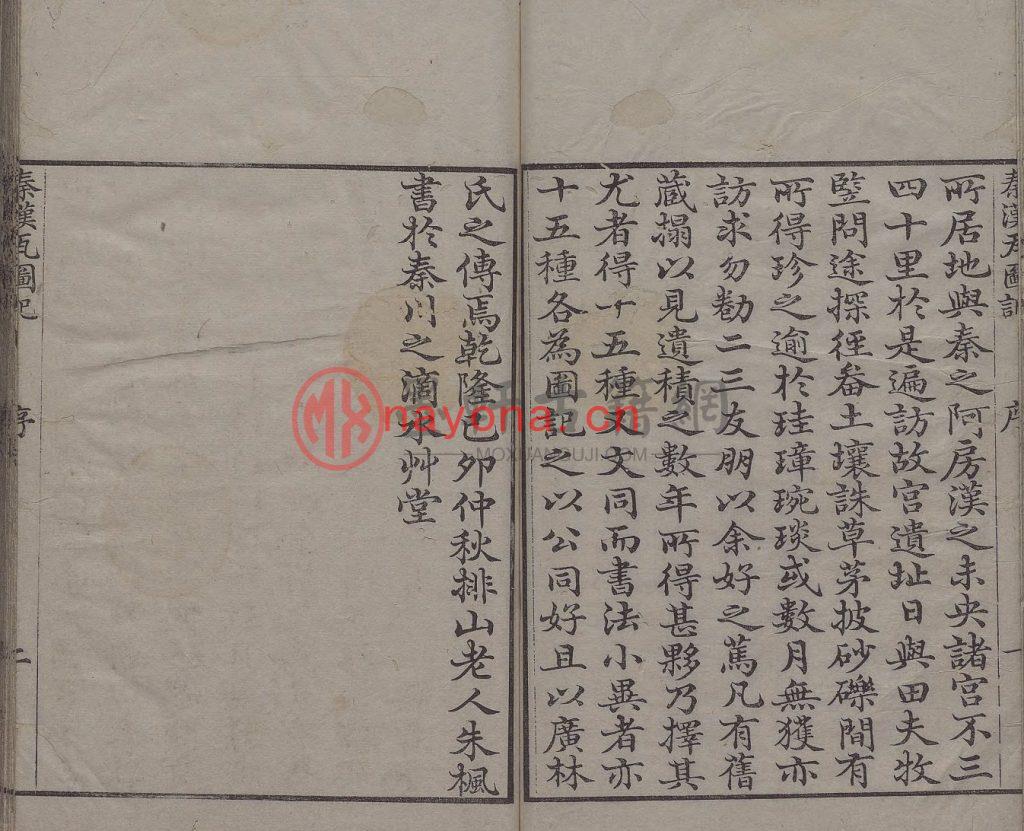 秦漢瓦圖記
序
一
所居地與秦之阿房漢之未央諸宮不三
四十里於是遍訪故宮遺址日與田夫牧
豎問途探徑畚土壤誅草茅披砂礫間有
所得珍之逾於珪璋琬琰或數月無獲亦
訪求勿勸二三友朋以余好之篤凡有舊
藏搨以見遺積之數年所得甚夥乃擇其
尤者得十五種又文同而書法小異者亦
十五種各為圖記之以公同好且以廣林
氏之傳焉乾隆己卯仲秋排山老人朱楓
書於秦川之滴水艸堂
秦漢瓦圖記
序
二
MX
nayona.cn
MOXUANGUJI.COM